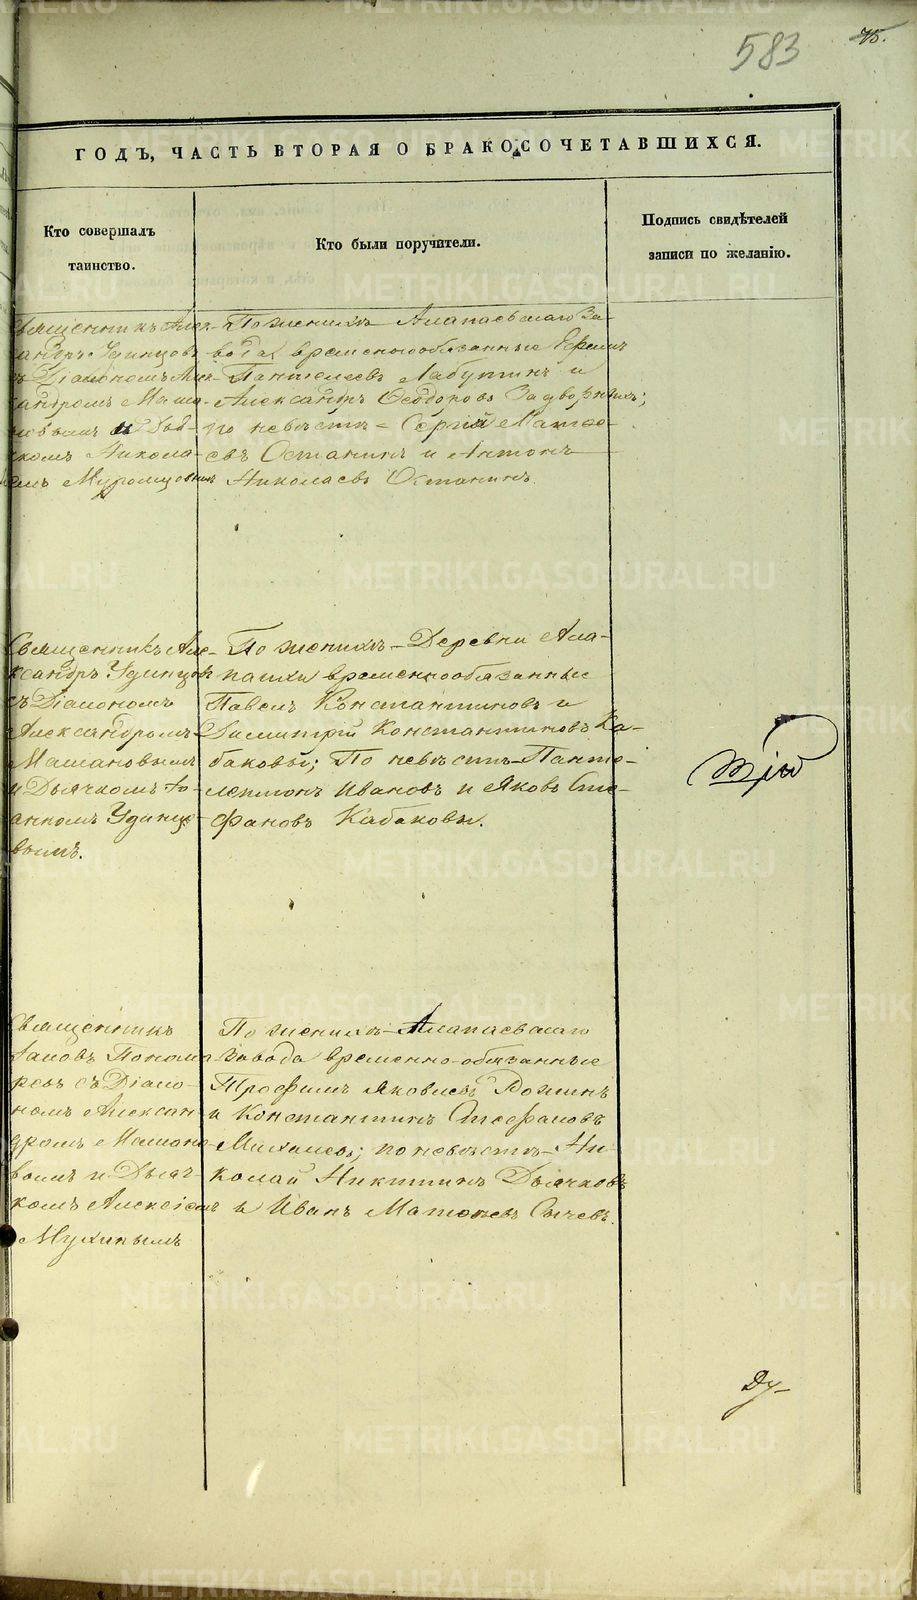 583
75.
ГОДЪ, ЧАСТЬ ВТОРАЯ О БРАКОСОЧЕТАВШИХСЯ.
Кто совершалъ
таинство.
Кто были поручители.
Подпись свидѣтелей
записи по желанію.
Священникъ Алек-
сандръ Удинцовъ
съ Діакономъ Алек-
сандромъ Маша-
новымъ и Дьяч-
комъ Никола-
емъ
По женихѣ Алапаевскаго За-
вода временнообязанные Ефимъ
Пантелеевъ Лабутинъ и
Александръ Ѳеодоровъ Задворныхъ;
по невѣстѣ - Сергій Матѳе-
евъ Останинъ и Антонъ
Николаевъ Останинъ.
Священникъ Але-
ксандръ Удинцовъ
съ Діакономъ
Александромъ
Машановымъ
и Дьячкомъ Іо-
анномъ Удинцо-
вымъ.
По женихѣ - Деревни Ала-
пашки временнообязанные
Павелъ Константиновъ и
Димитрій Константиновъ Ка-
баковы; По невѣстѣ - Панте-
леимонъ Ивановъ и Яковъ Сте-
фановъ Кабаковы.
Священникъ
Іаковъ Понома-
ревъ съ Діако-
номъ Алексан-
дромъ Машано-
вымъ и Дьяч-
комъ Алексіемъ
Мухинымъ
По женихѣ - Алапаевскаго
завода временно-обязанные
Трофимъ Яковлевъ
и Константинъ Стефановъ
по невѣстѣ - Ни-
колай Никитинъ Дьячковъ
и Иванъ Сычевъ.